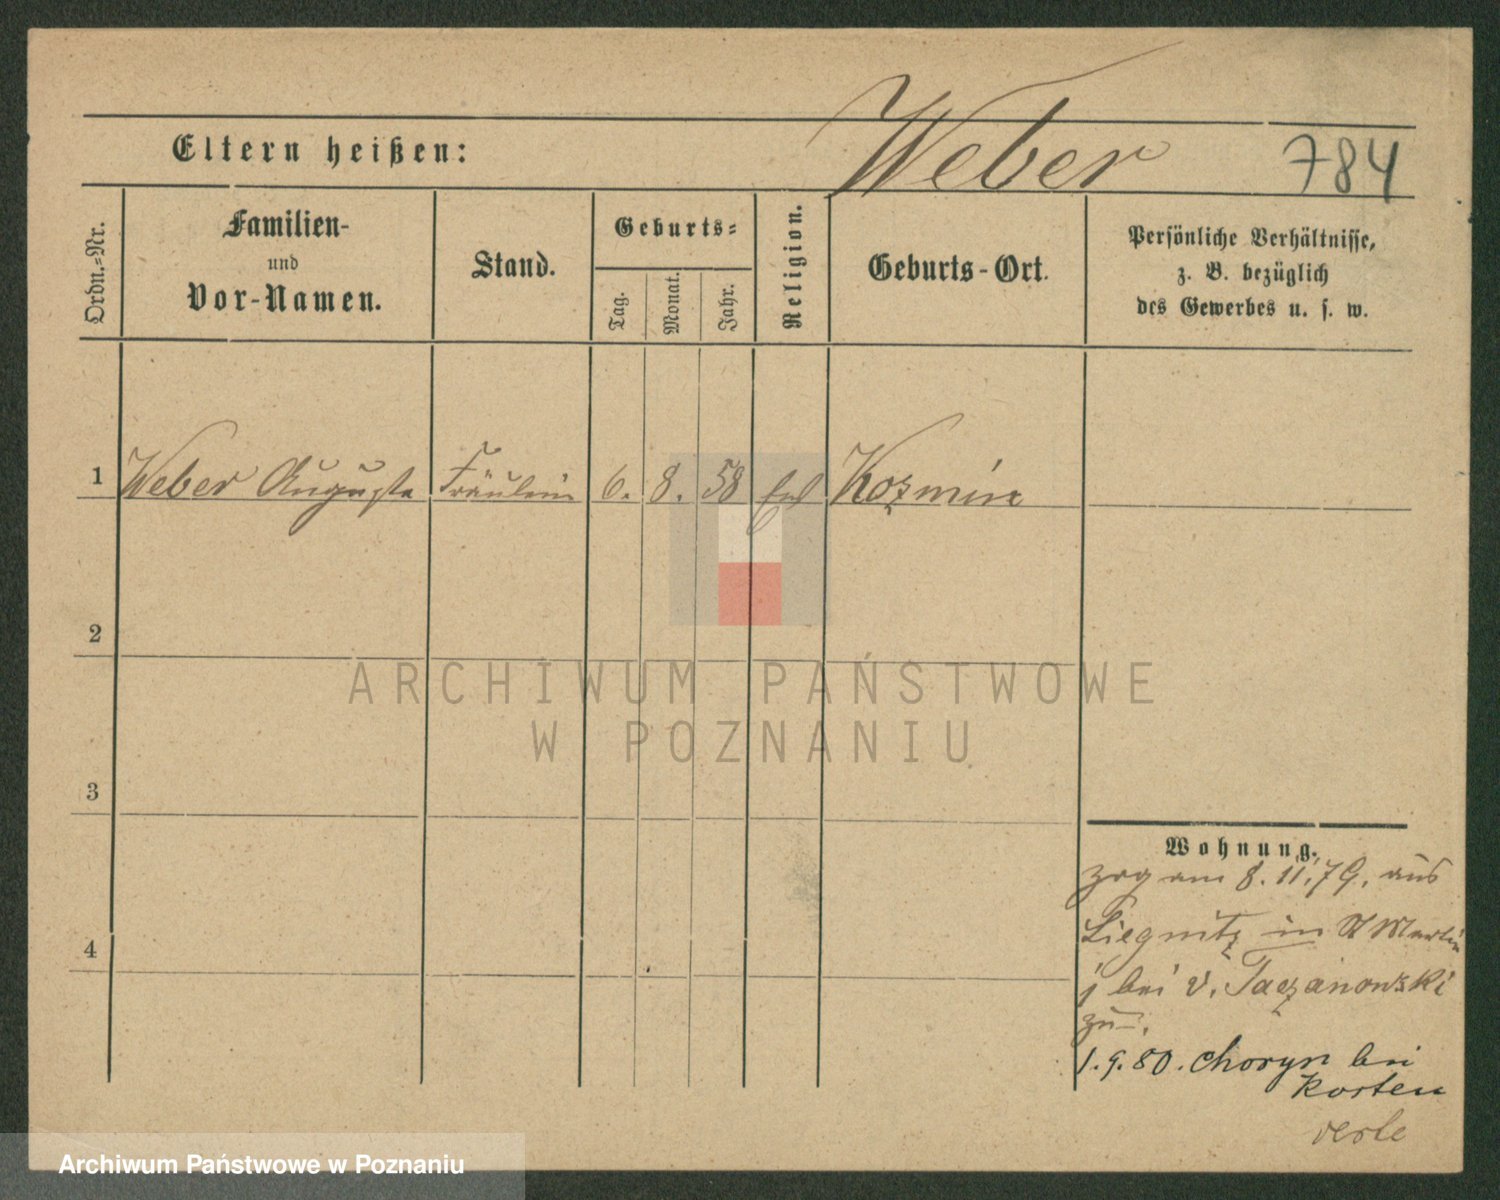 Eltern heißen:
Weber
784
Ordn.-Nr.
Familien-
und
Vor-Namen.
Stand.
Geburts-
Tag.
Monat.
Jahr.
Religion.
Geburts-Ort.
Persönliche Verhältnisse,
z. B. bezüglich
des Gewerbes u. s. w.
1 Weber Auguste Fräulein 6. 8. 58 Kozmin
2
ARCHIWUM PAŃSTWOWE
W POZNANIU
3
Wohnung.
zog am 8.11.79. aus
Liegnitz in St Martin
bei v. Taczanowski
zu.
4
1.9.80. Choryn bei
Kosten
Archiwum Państwowe w Poznaniu